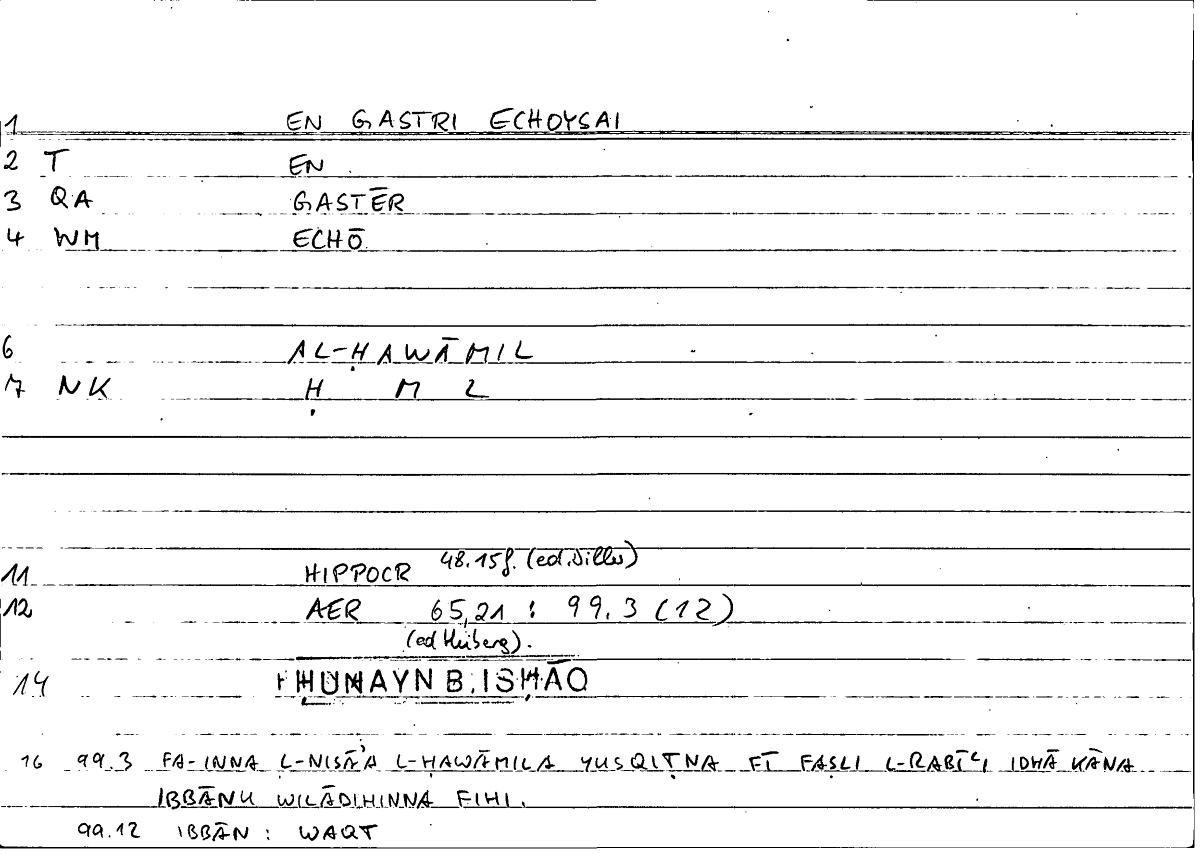 1 EN GASTRI ECHOYSAI
2 T EN
3 QA GASTĒR
4 WM ECHŌ
6 AL-ḤAWĀMIL
7 NK Ḥ M L
11 HIPPOCR 48.15f. (ed. Diller)
12 AER 65,21 : 99.3 (12)
(ed Heiberg).
14 ḤUNAYN B. ISḤĀQ
16 99.3 FA-INNA L-NISĀʾA L-ḤAWĀMILA YUSQIṬNA FĪ FAṢLI L-RABĪʿI IDHĀ KĀNA
IBBĀNU WILĀDIHINNA FIHI.
99.12 IBBĀN : WAQT